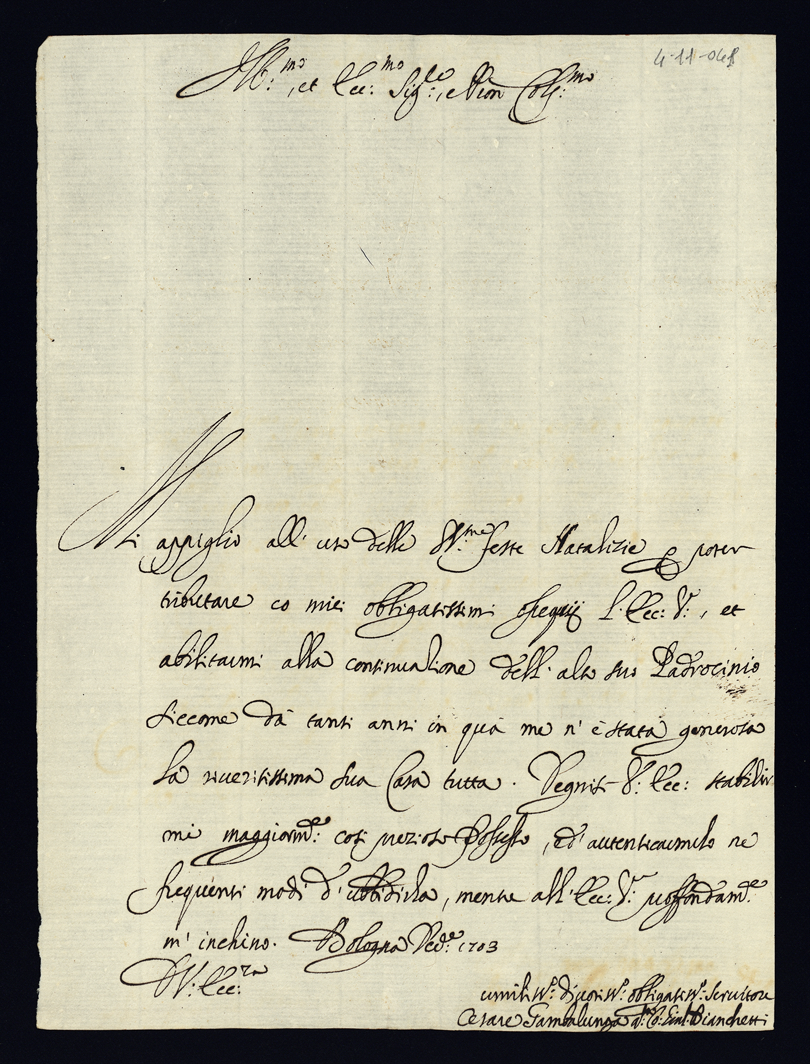 4-11-048
Ill:mo, et Ecc:mo Sig:re, e Pron Col:mo
Mi appiglio all' uso delle SS:me feste Natalizie per poter
tributare co miei obligatissimi ossequij l'Ecc: V:, et
abilitarmi alla continuazione dell' alto suo Padrocinio
siccome dà tanti anni in quà me n' è stata generosa
la riveritissima sua Casa tutta. Degnisi V: Ecc: stabilir
mi maggiorm:e così prezioso possesso, ed' autenticarmelo ne
frequenti modi d' ubbidirla, mentre all' Ecc: V:ra proffondam:e
m' inchino. Bologna Xed:e 1703
D V: Ecc:za
umiliss:o divotiss:o obligatiss:o Servitore
Cesare Gambalunga Bianchetti